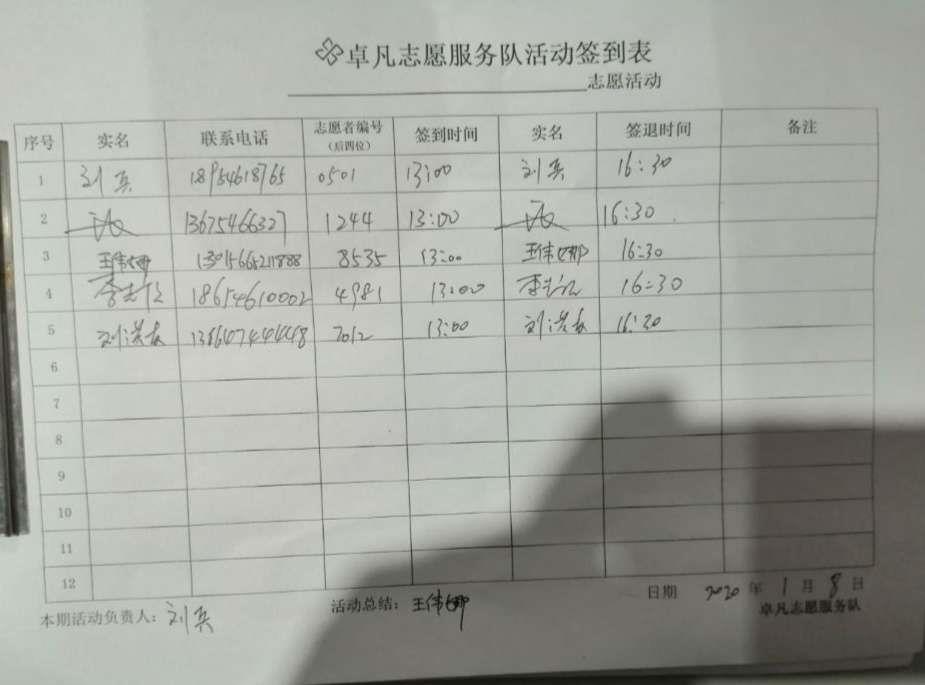 卓凡志愿服务队活动签到表
志愿活动
序号 实名 联系电话 志愿者编号（后四位） 签到时间 实名 签退时间 备注
1 刘兵 18954618765 0501 13:00 刘兵 16:30
2 13675466327 1244 13:00 16:30
3 王伟娜 8535 13:00 王伟娜 16:30
4 李志 18654610002 4981 13:00 李志 16:30
5 刘洪 7012 13:00 刘洪 16:30
6
7
8
9
10
11
12
日期 2020 年 1 月 8 日
本期活动负责人：刘兵 活动总结：王伟娜 卓凡志愿服务队